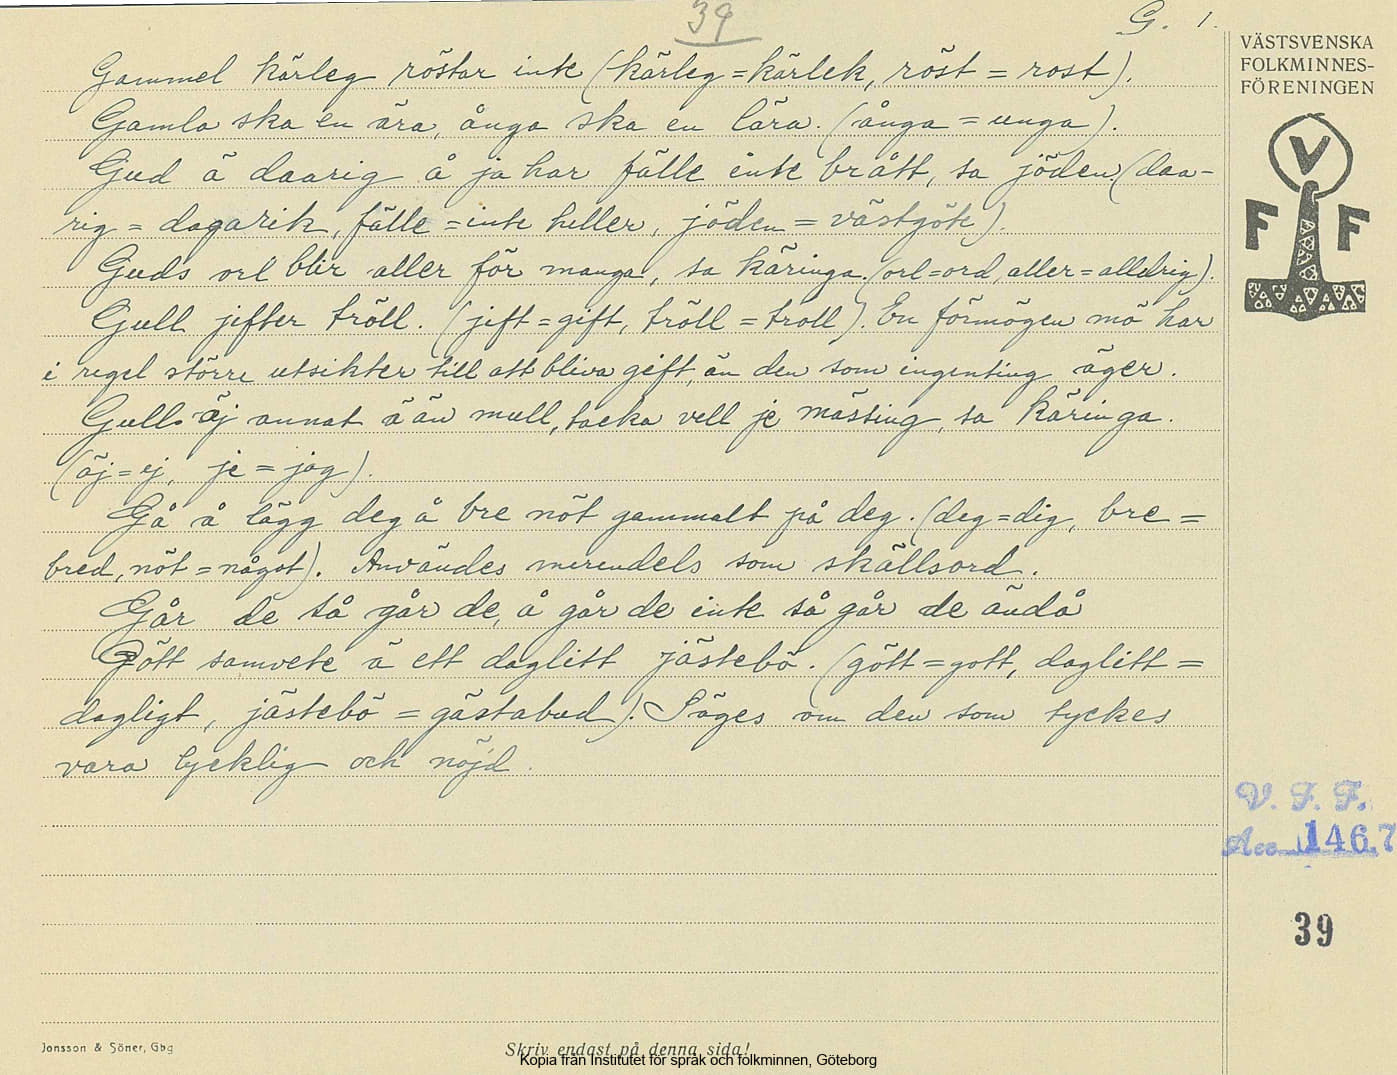 39
G. 1.
Gammel kärleg röstar inte (kärleg = kärlek, röst = rost).
Gamla ska en ära, ånga ska en lära. (ånga = unga).
Gud ä daarig å ja har fälle inte brått, sa jöden (daa-
rig = dagarik, fälle = inte heller, jöden = västgöte).
Guds orl blir aller för manga, sa käringa. (orl = ord, aller = alldrig).
Gull jifter tröll. (jift = gift, tröll = troll). En förmögen mö har
i regel större utsikter till att bliva gift, än den som ingenting äger.
Gull äj annat ä än mull, tacka vell je mässing, sa käringa.
(äj = ej, je = jag).
Gå å lägg deg å bre nöt gammalt på deg. (deg = dig, bre =
bred, nöt = något). Användes merendels som skällsord.
Går de så går de, å går de inte så går de ändå
Gött samvete ä ett daglitt jästebö. (gött = gott, daglitt =
dagligt, jästebö = gästabud). Säges om den som tyckes
vara lycklig och nöjd.
VÄSTSVENSKA
FOLKMINNES-
FÖRENINGEN
V
F F
V. F. F.
Acc 1467
39
Jonsson & Söner, Gbg
Skriv endast på denna sida!
Kopia från Institutet för språk och folkminnen, Göteborg